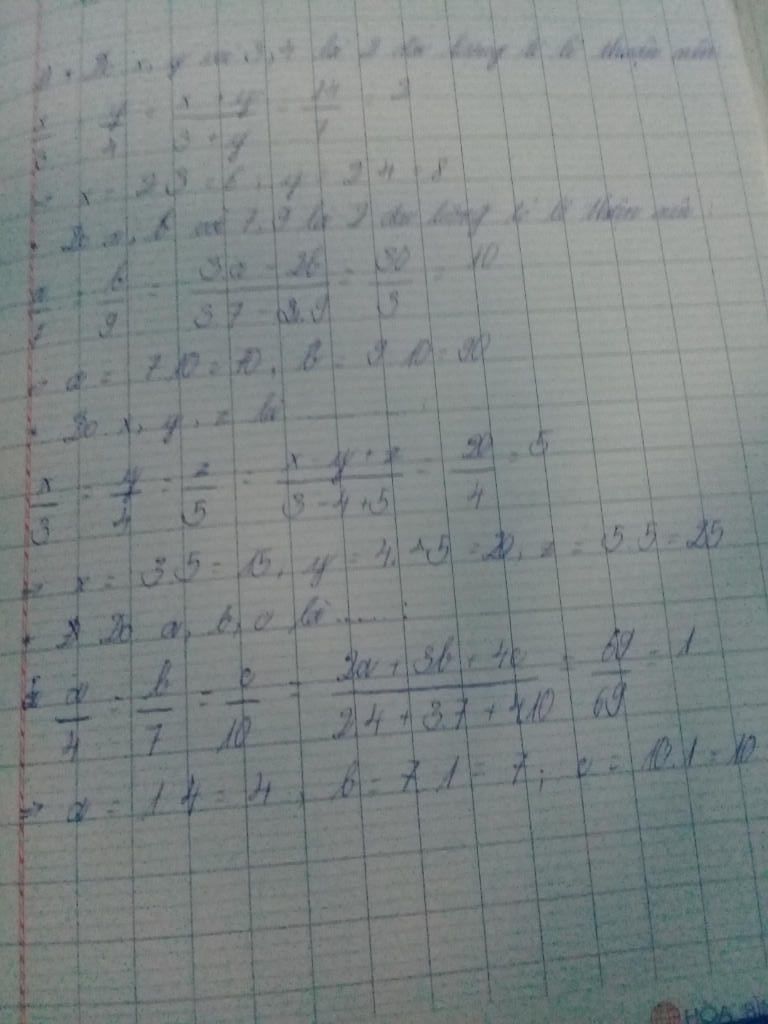 Do x, y và 3, 4 là 2 đại lượng tỉ lệ thuận nên
x/3 = y/4 = x + y/3 + y = 14/7 = 2
→ x = 2.3 = 6, y = 2.4 = 8
• Do a, b và 7, 9 là 2 đại lượng tỉ lệ thuận nên
a/7 = b/9 = 3a - 2b/3.7 - 2.9 = 30/3 = 10
→ a = 7.10 = 70, b = 9.10 = 90
• Do x, y, z là
x/3 = y/4 = z/5 = x - y + z/3 - 4 + 5 = 20/4 = 5
→ x = 3.5 = 15, y = 4.5 = 20, z = 5.5 = 25
• Do a, b, c là.....:
a/4 = b/7 = c/10 = 2a + 3b + 4c/2.4 + 3.7 + 4.10 = 69/69 = 1
→ a = 1.4 = 4, b = 7.1 = 7, c = 10.1 = 10